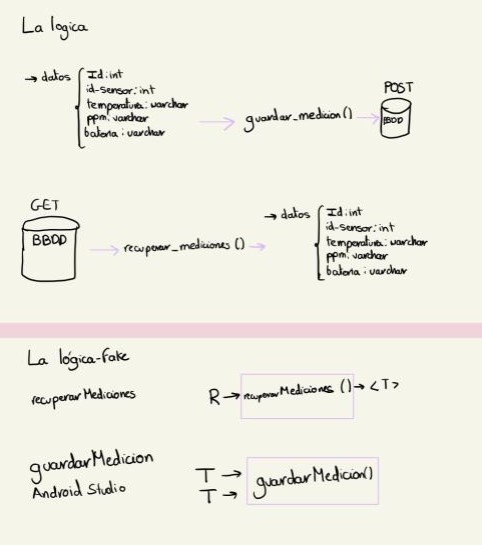 La logica
→ datos
Id: int
id-sensor: int
temperatura: varchar
ppm: varchar
bateria: varchar
guardar_medicion()
POST
BBDD
GET
BBDD
recuperar_mediciones()
→ datos
Id: int
id-sensor: int
temperatura: varchar
ppm: varchar
bateria: varchar
La lógica-fake
recuperarMediciones
R → recuperarMediciones () → <T>
guardarMedicion
Android Studio
T →
T →
guardarMedicion()